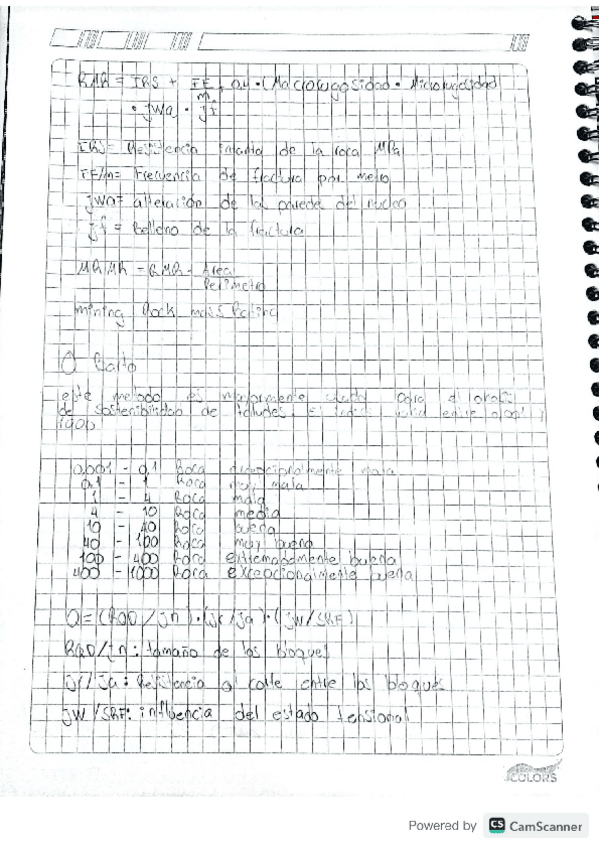 RMR = IRS + IF/m, 0,4 · (Macrorugosidad · Microrugosidad
· jwa · jf
IRS = Resistencia intacta de la roca MPa
IF/m = Frecuencia de fractura por metro
jwa = alteración de la pared del nucleo
jf = Relleno de la fractura
MRMR = RMR - Area
Perimetro
mining Rock mass Rating
Q Barto
este metodo es mayormente usado para el
de sostenibilidad de taludes. El varia entre 0,001 y
1000
0,001 - 0,1 Roca excepcionalmente mala
0,1 - 1 Roca muy mala
1 - 4 Roca mala
4 - 10 Roca media
10 - 40 Roca buena
40 - 100 Roca muy buena
100 - 400 Roca extremadamente buena
400 - 1000 Roca excepcionalmente buena
Q = (RQD / jn) · (jr / ja) · (jw / SRF)
RQD / jn : tamaño de los bloques
jr / ja : Resistencia al corte entre los bloques
jw / SRF : influencia del estado tensional
COLORS
Powered by CS CamScanner